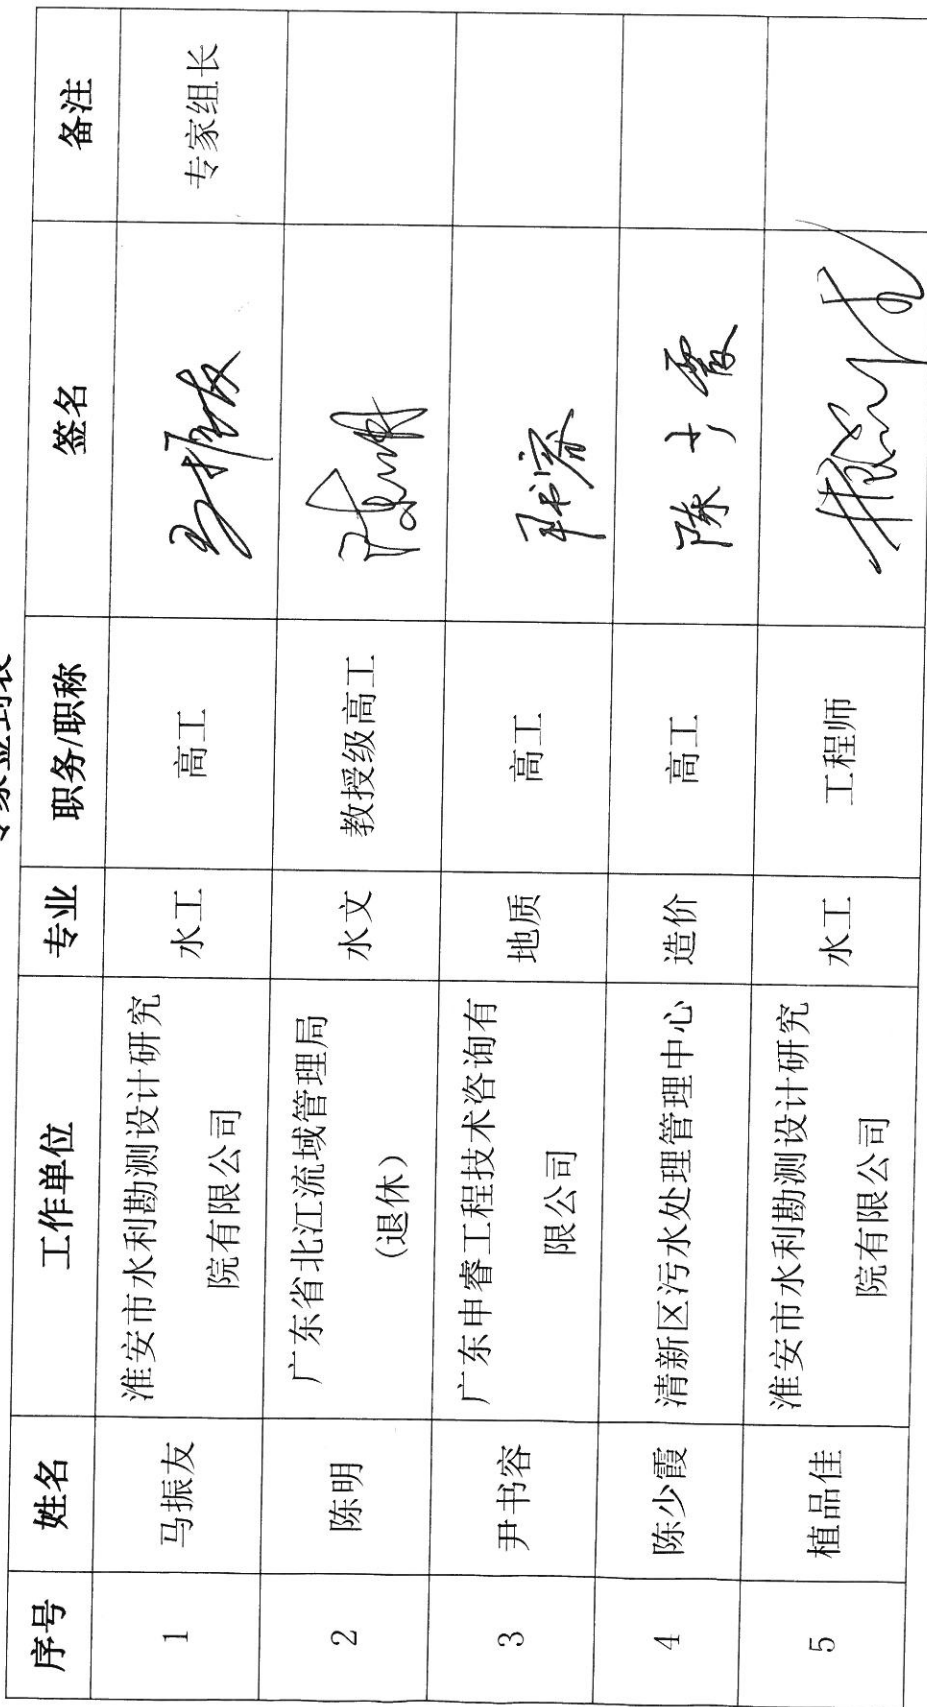 专家签到表
序号 姓名 工作单位 专业 职务/职称 签名 备注
1 马振友 淮安市水利勘测设计研究 水工 高工 马振友 专家组长
院有限公司
2 陈明 广东省北江流域管理局 水文 教授级高工
(退休)
3 尹书容 广东申睿工程技术咨询有 地质 高工 尹书容
限公司
4 陈少霞 清新区污水处理管理中心 造价 高工 陈少霞
5 植品佳 淮安市水利勘测设计研究 水工 工程师
院有限公司